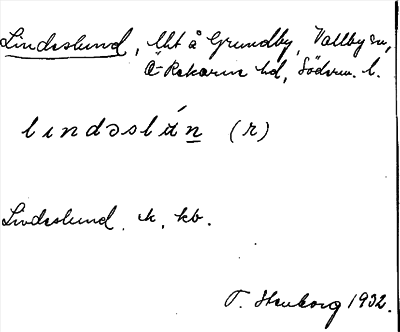 Lindeslund, lht å Grundby, Vallby sn,
Ö-Rekarne hd, Söderm. l.
lındəslán̲ (r)
Lindeslund. k, kb.
T. Stenborg 1932.